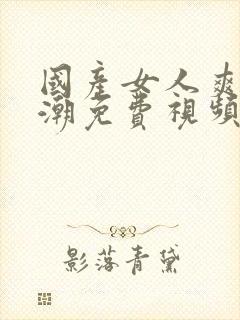 國產女人爽
潮免費視頻
影落青黛